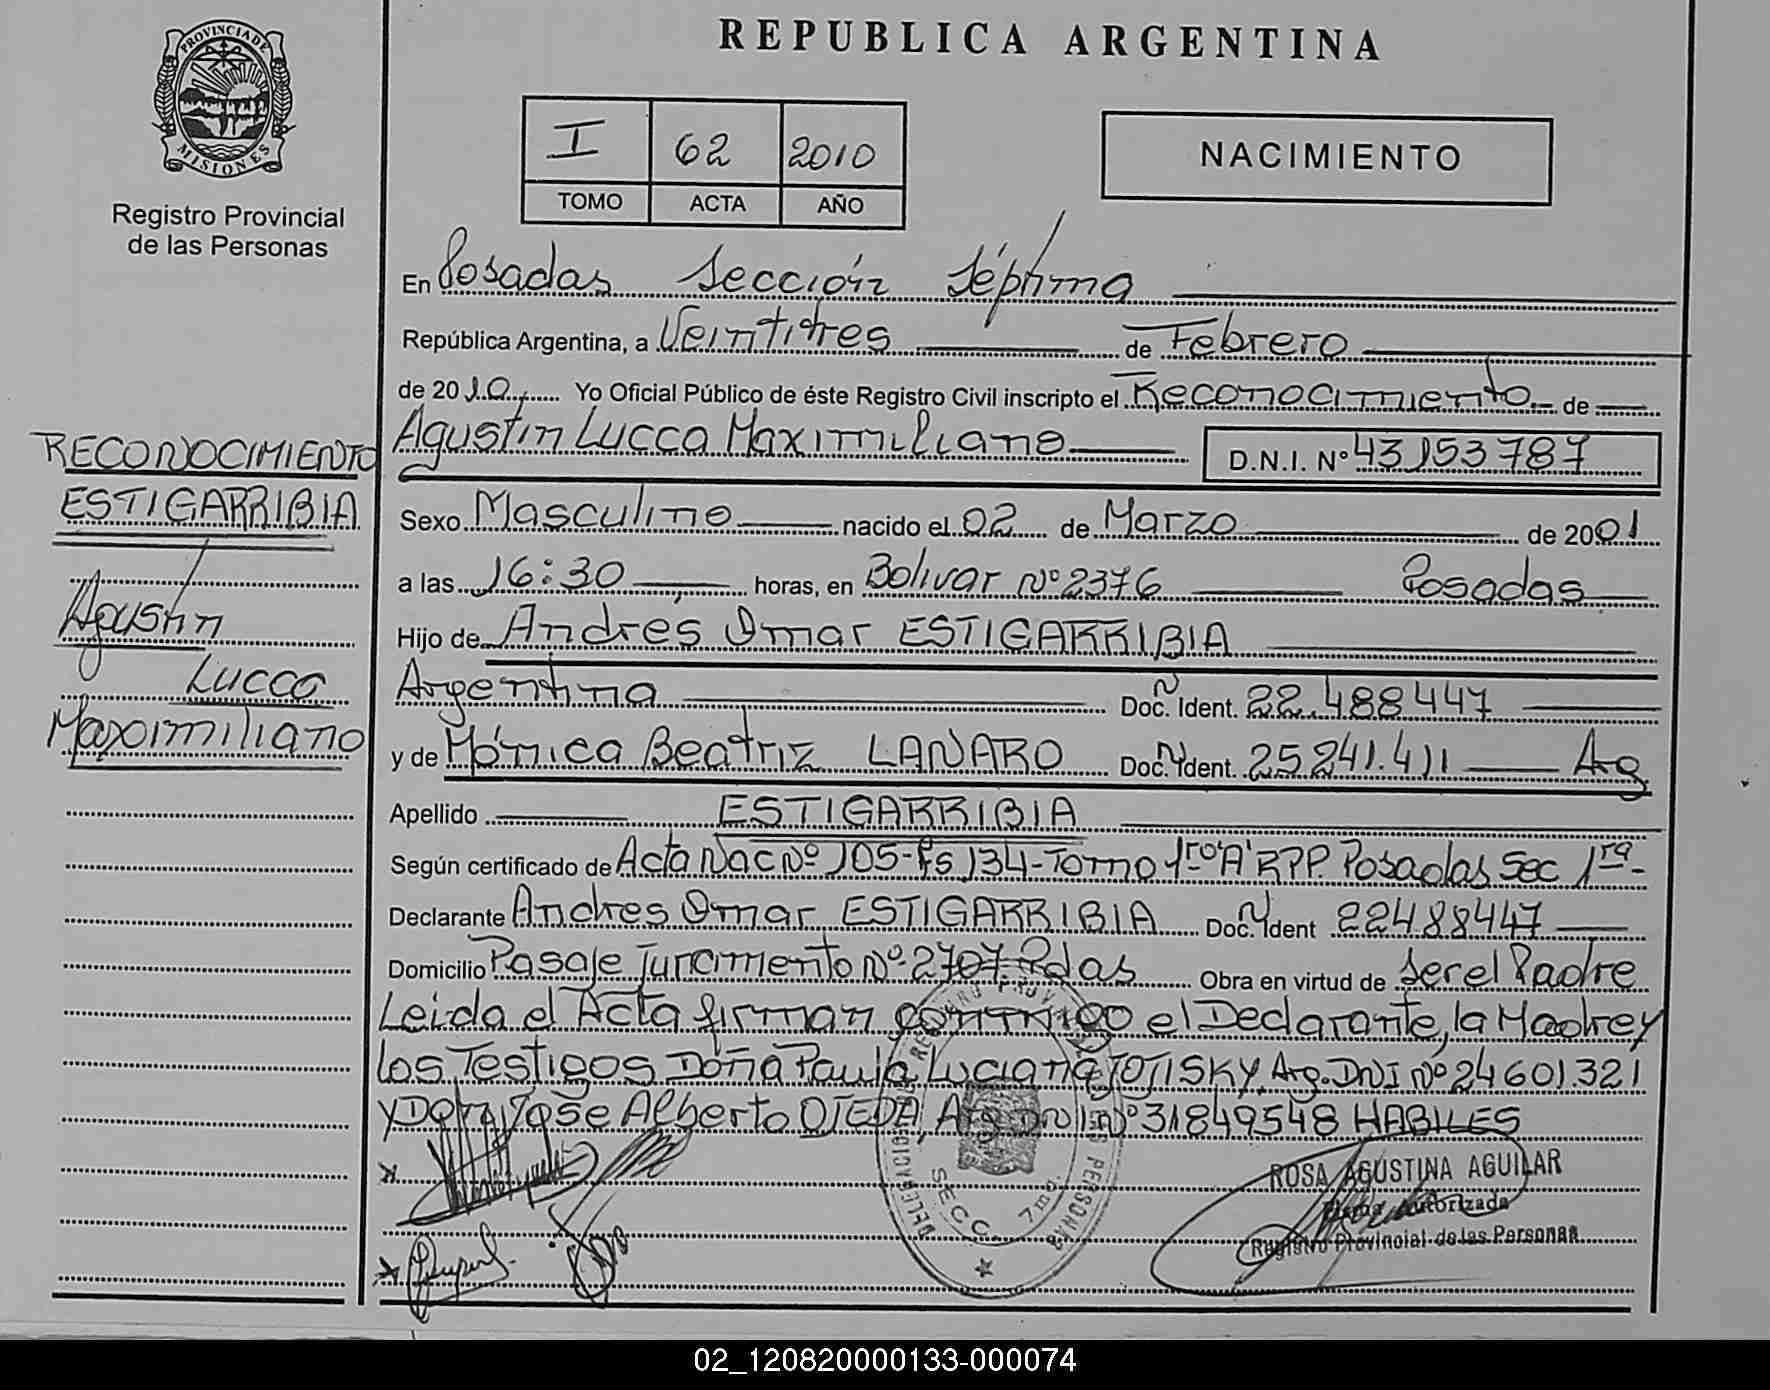 PROVINCIA DE
MISIONES
Registro Provincial
de las Personas
RECONOCIMIENTO
ESTIGARRIBIA
Agustín
Lucca
Maximiliano
REPUBLICA ARGENTINA
I 62 2010
TOMO ACTA AÑO
NACIMIENTO
En Posadas Sección Séptima
República Argentina, a Veintitres de Febrero
de 2010 Yo Oficial Público de éste Registro Civil inscripto el Reconocimiento de
Agustín Lucca Maximiliano D.N.I. N° 43153787
Sexo Masculino nacido el 02 de Marzo de 2001
a las 16:30 horas, en Bolivar N° 2376 Posadas
Hijo de Andrés Omar ESTIGARRIBIA
Argentina Doc. Ident. 22.488447
y de Mónica Beatriz LANARO Doc. Ident. 25241.411 Arg
Apellido ESTIGARRIBIA
Según certificado de Acta Nac N° 105-Fs 134-Tomo 1ro "A" RPP. Posadas Sec 1ra-
Declarante Andres Omar ESTIGARRIBIA Doc. Ident 22488447
Domicilio Pasaje Juramento N°-2707-Pdas Obra en virtud de ser el Padre
Leida el Acta firman conmigo el Declarante, la Madre y
los Testigos Doña Paula Luciana TOTISKY, Arg. DNI N° 24601.321
y Don José Alberto OJEDA, Arg DNI N° 31849548 HABILES
DELEGACION REGISTRO PROVINCIAL DE LAS PERSONAS
SECC. 7ma.
ROSA AGUSTINA AGUILAR
Firma Autorizada
Registro Provincial de las Personas
02_120820000133-000074